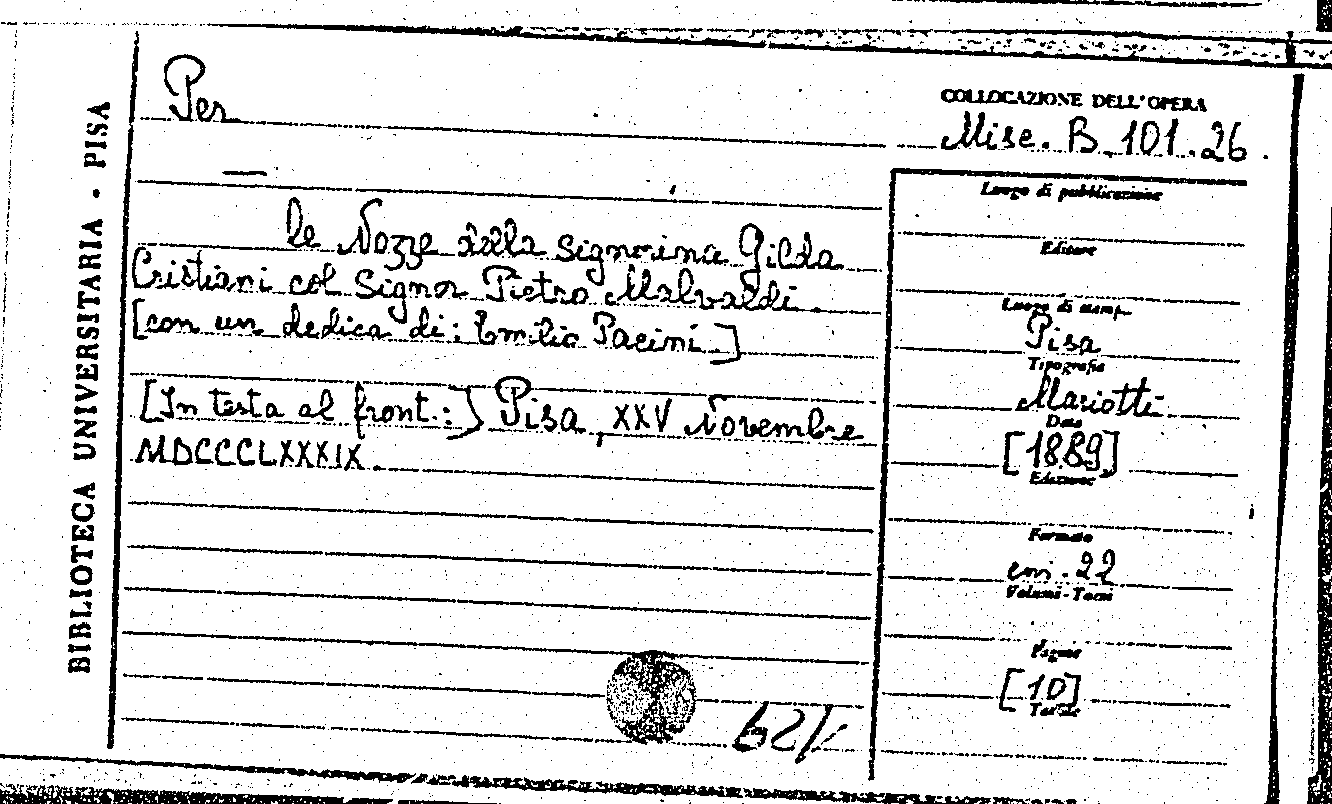 BIBLIOTECA UNIVERSITARIA - PISA
Per
COLLOCAZIONE DELL'OPERA
Misc. B. 101.26.
le Nozze della Signorina Gilda
Cristiani col Signor Pietro Malvaldi.
[con un dedica di: Emilio Pacini]
[In testa al front.:] Pisa, XXV Novembre
MDCCCLXXXIX.
Luogo di pubblicazione
Editore
Luogo di stamp.
Pisa
Tipografia
Mariotti
Data
[1889]
Edizione
Formato
cm. 22
Volumi - Tomi
Pagine
[10]
Tavole